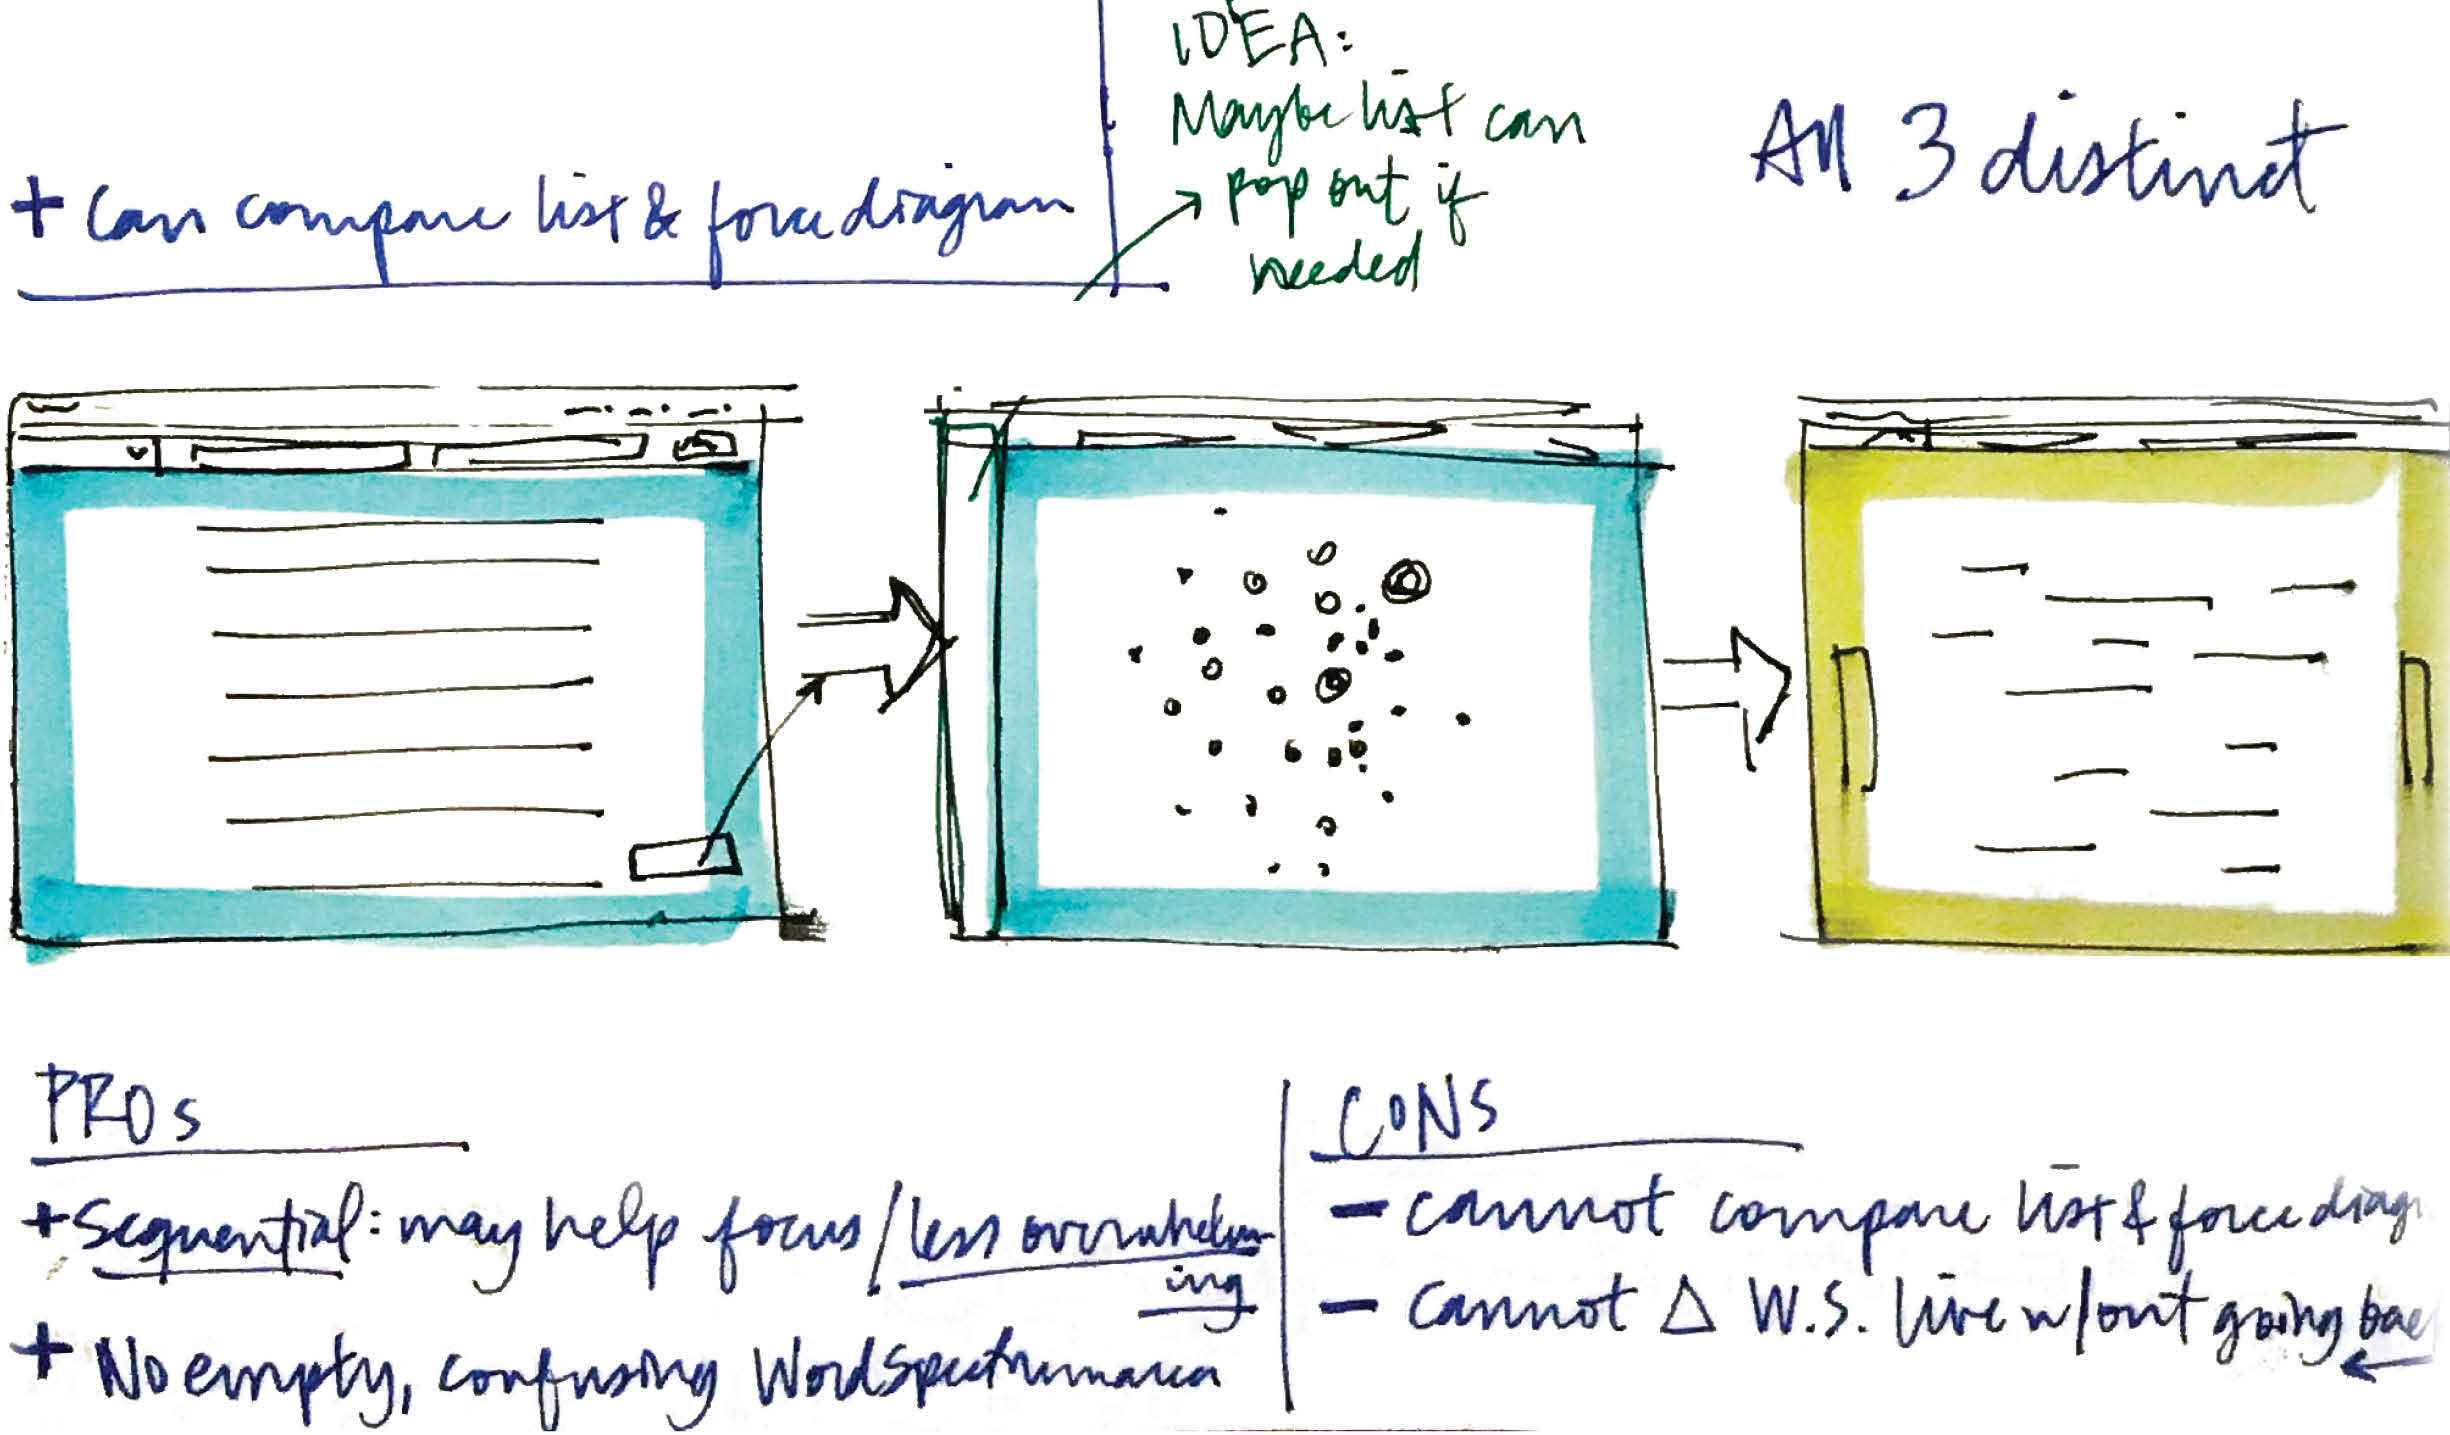 + Can compare list & force diagram
IDEA:
Maybe list can
pop out if
needed
All 3 distinct
PROs
+ Sequential: may help focus / less overwhelm
ing
+ No empty, confusing WordSpectrum area
CONS
- cannot compare list & force diag
- cannot Δ W.S. live w/out going bac